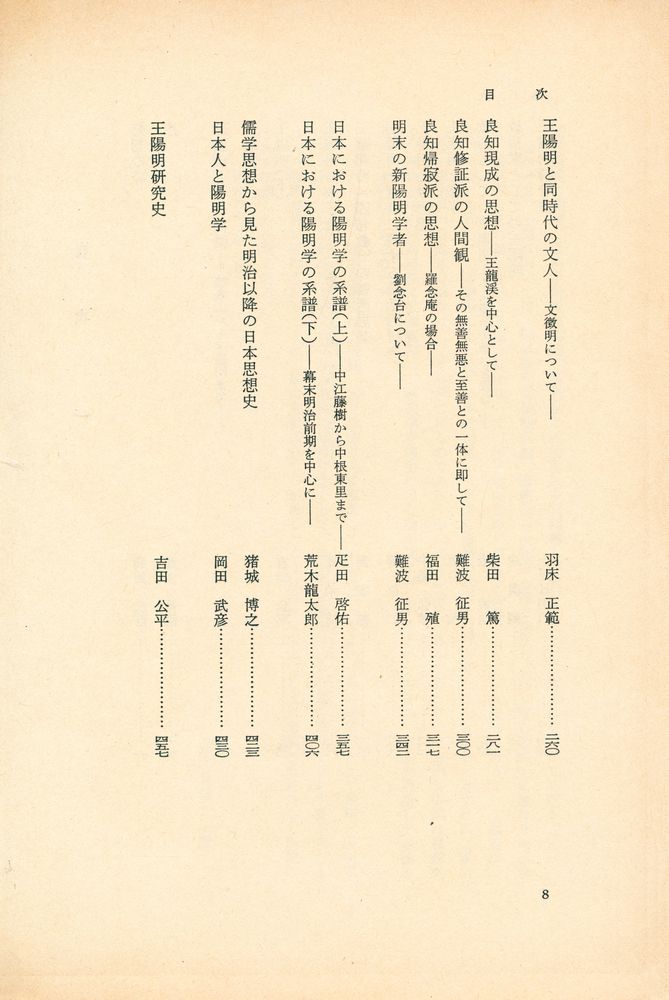 目次
王陽明と同時代の文人――文徴明について――　羽床　正範…………二六〇
良知現成の思想――王龍渓を中心として――　柴田　篤…………二八一
良知修証派の人間観――その無善無悪と至善との一体に即して――　難波　征男…………三〇〇
良知帰寂派の思想――羅念庵の場合――　福田　殖…………三一七
明末の新陽明学者――劉念台について――　難波　征男…………三四二
日本における陽明学の系譜(上)――中江藤樹から中根東里まで――　疋田　啓佑…………三五七
日本における陽明学の系譜(下)――幕末明治前期を中心に――　荒木龍太郎…………四〇六
儒学思想から見た明治以降の日本思想史　猪城　博之…………四二三
日本人と陽明学　岡田　武彦…………四三〇
王陽明研究史　吉田　公平…………四五七
8